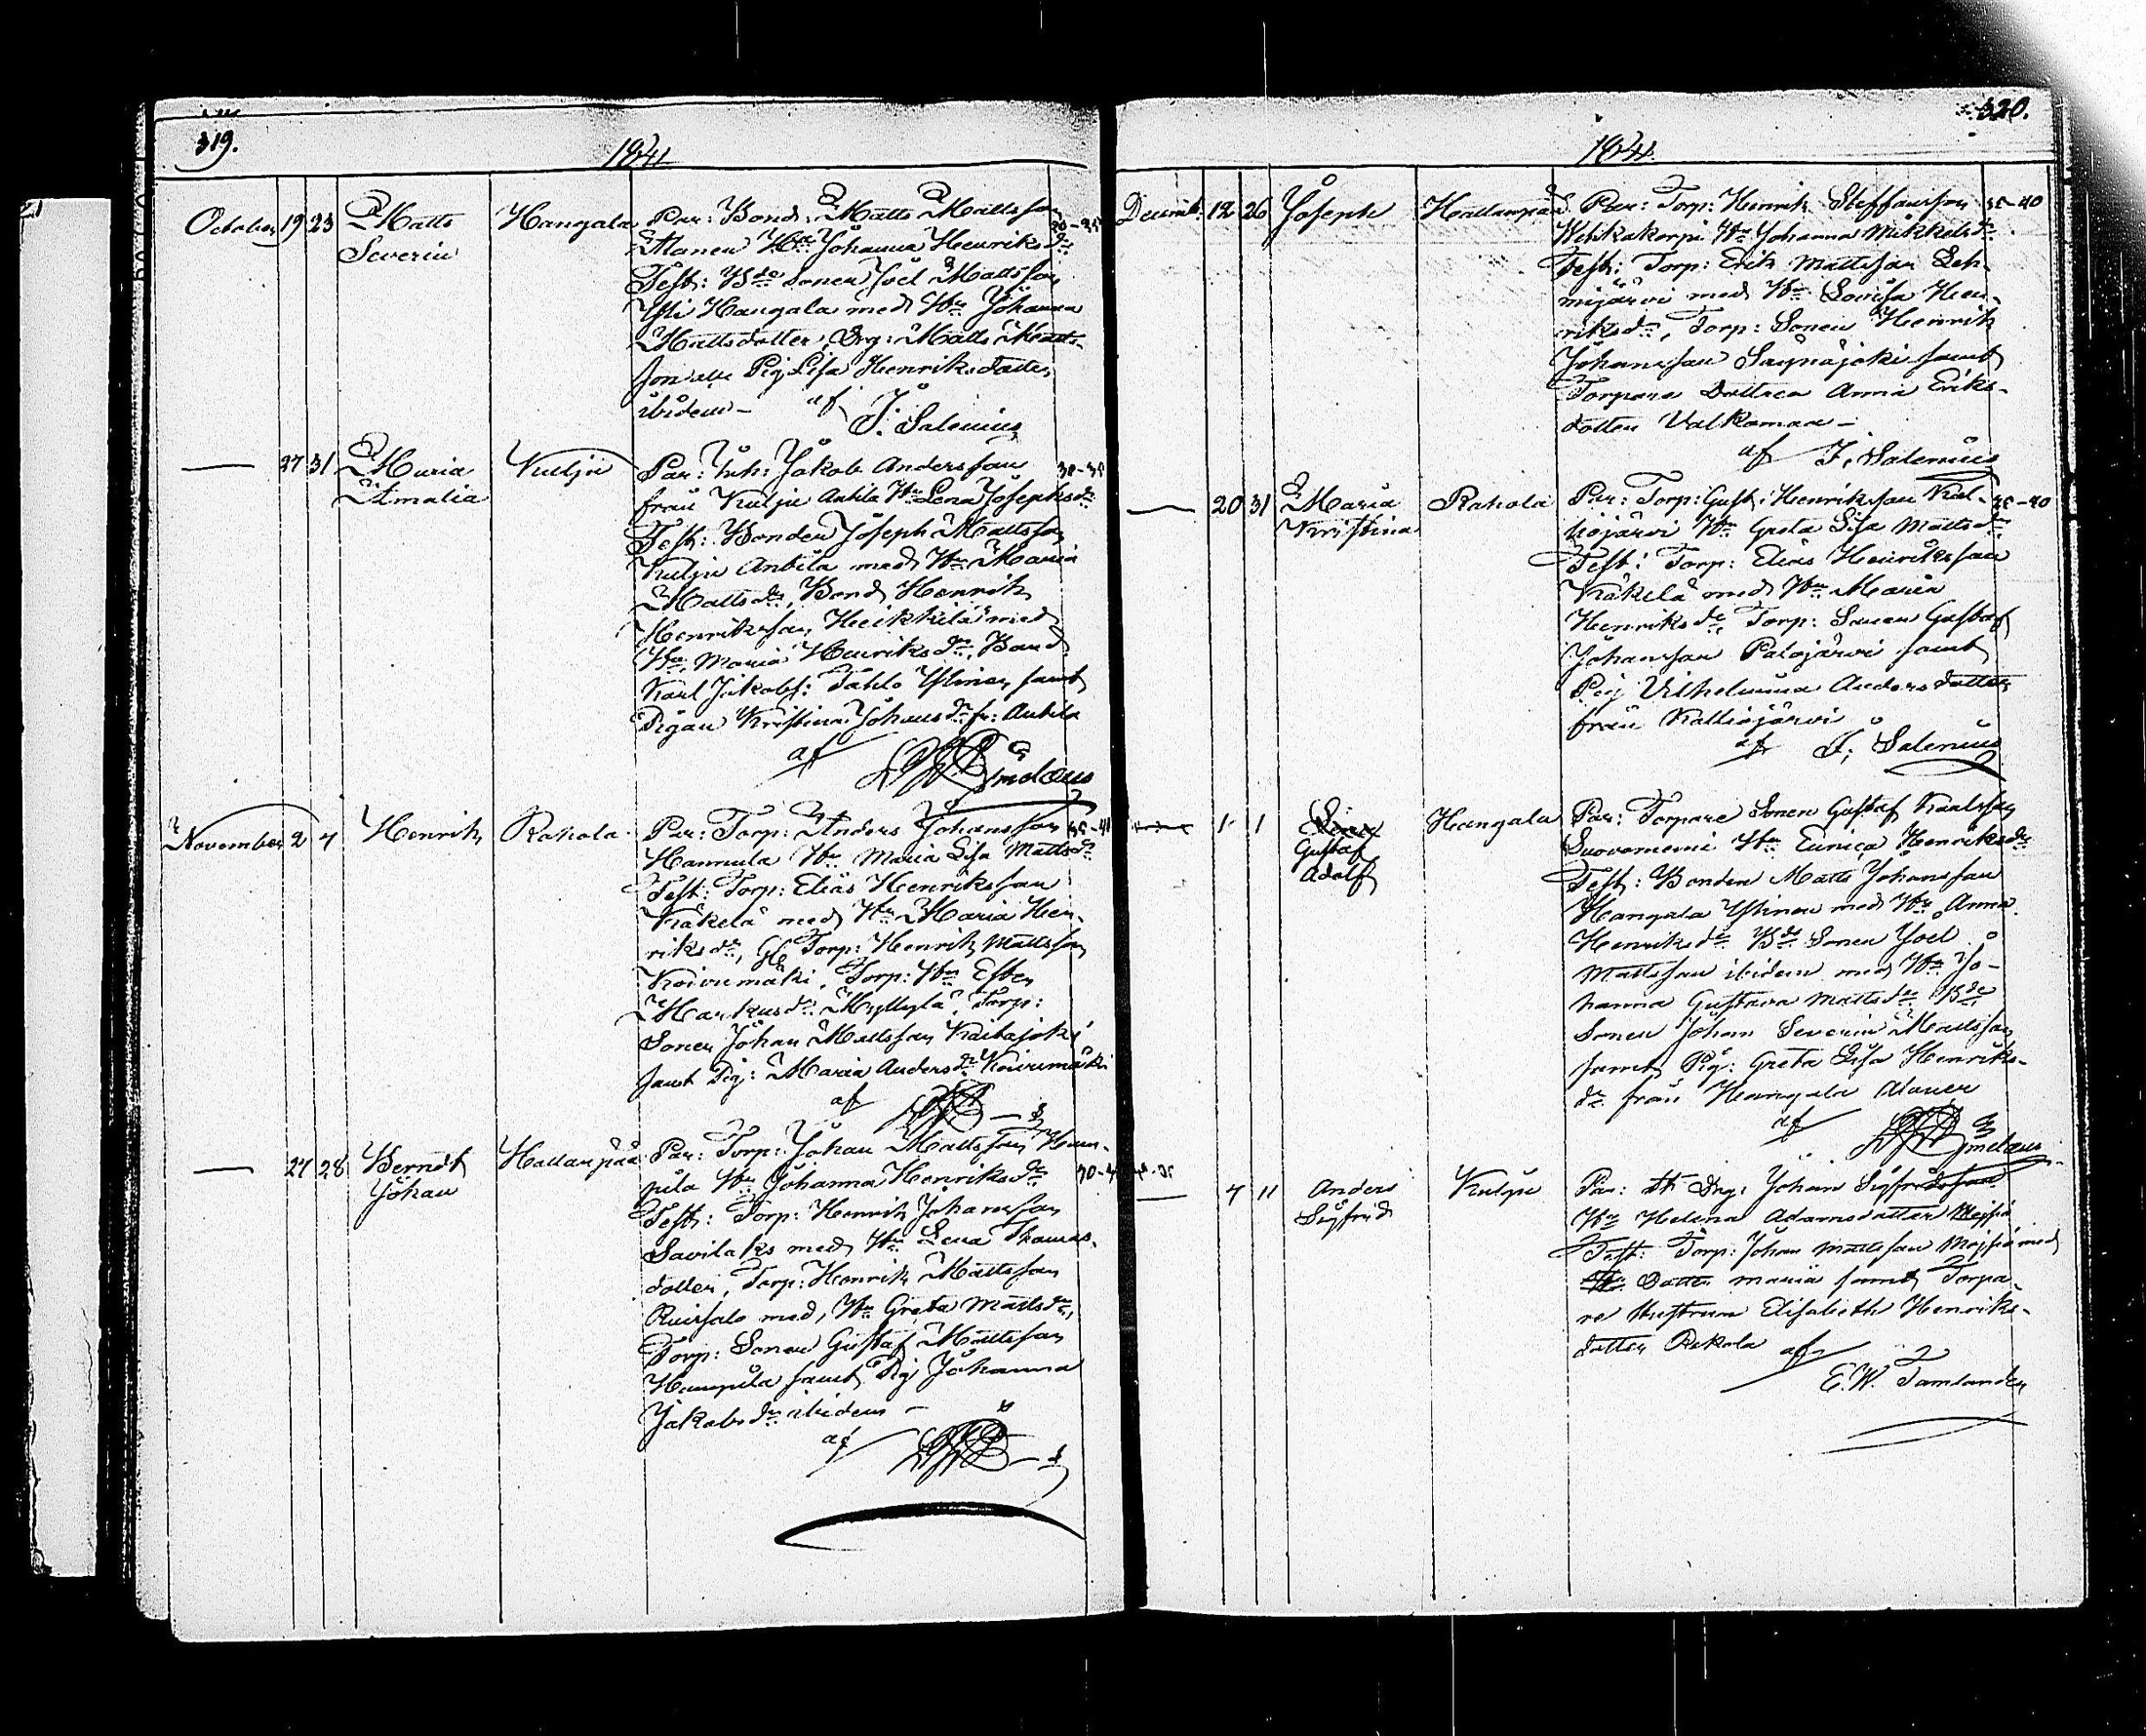 319.
1841
October 19 23 Matts Hangala Par: Bond: Matts Mattsson 30-35
Severin Alanen Hu Johanna Henriksdr
Test: Bde sonen Joel Mattsson
Yli Hangala med Hu Johanna
Mattsdotter, Drg: Matts Matts-
son Pig Lisa Henriksdotter
ibidem – af J. Salenius
— 27 31 Maria Kulju Par: Inh: Jakob Andersson 30-35
Amalia från Kulju Antila Hu Lena Josephsdr
Test: Bonden Joseph Mattsson
Kulju Antila med Hu Maria
Mattsdr, Bond Henrik
Henriksson Heikkilä med
Hu Maria Henriksdr, Bond
Karl Jakobs: Tahlo Ylinen samt
Pigan Kristina Johansdr fr: Antila
af
November 2 7 Henrik Rakola Par: Torp: Anders Johansson 35-41
Hannula Hu Maria Lisa Mattsdr
Test: Torp: Elias Henriksson
Käkelä med Hu Maria Hen-
riksdr, Torp: Henrik Mattsson
Koivumäki, Torp: Hu Ester
Markusdr Myllylä, Torp:
Sonen Johan Mattsson Kaitajoki
samt Pig: Maria Andersdr Koivumäki
af
— 27 28 Berndt Hallanpää Par: Torp: Johan Mattsson Hom-
Johan pila Hu Johanna Henriksdr
Test: Torp: Henrik Johansson
Savilaks med Hu Lena Thomas-
dotter, Torp: Henrik Mattsson
Ruissalo med Hu Greta Mattsdr,
Torp: Sonen Gustaf Mattsson
Hompila samt Pig Johanna
Jakobsdr ibidem –
af
320.
1841.
Decemb: 12 26 Joseph Hallanpää Par: Torp: Henrik Steffansson 35-40
Hu Johanna Mickelsdr
Test: Torp: Erik Mattsson Leh-
mijärvi med Hu Lovisa Hen-
riksdr, Torp: Sonen Henrik
Johansson Saynäjoki samt
Torpare Dottren Anna Eriks-
dotter Valkaman –
af J. Salenius
— 20 31 Maria Rakola Par: Torp: Gust: Henriksson Kal-
Kristina liojärvi Hu Greta Lisa Mattsdr
Test: Torp: Elias Henriksson
Käkelä med Hu Maria
Henriksdr, Torp: Sonen Gustaf
Johansson Palojärvi samt
Pig Vilhelmina Andersdotter
från Kalliojärvi
af J. Salenius
1 1 Hangala Par: Torpare Sonen Gustaf Karlsson
Gustaf Suovaniemi Hu Eunica Henriksdr
Adolf Test: Bonden Matts Johansson
Hangala Ylinen med Hu Anna
Henriksdr Bde Sonen Joel
Mattsson ibidem med Hu Jo-
hanna Gustava Mattsdr Bde
Sonen Johan Severin Mattsson
samt Pig: Greta Lisa Henriks-
dr från Hangala Alanen
af
— 7 11 Anders Kulju Par: Drg: Johan Sigfridsson
Sigfrid Hu Helena Adamsdotter
Test: Torp: Johan Mattsson med
Dotter Maria samt Torpa-
re Hustrun Elisabeth Henriks-
dotter af
E. W. Tamlander